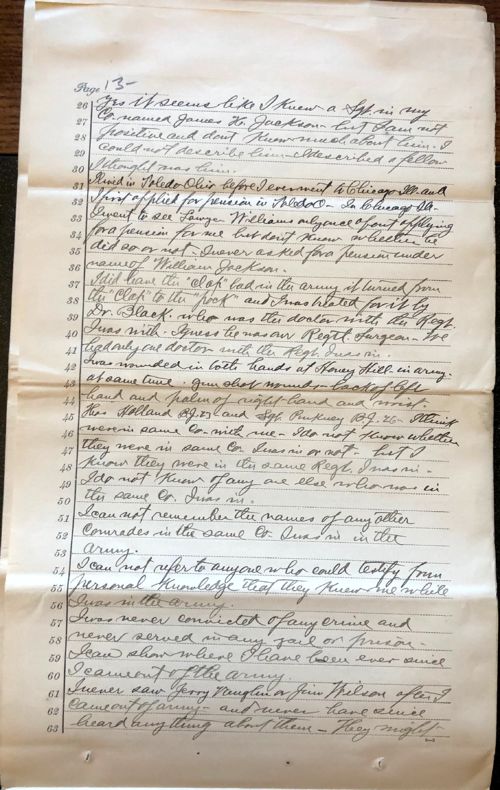 Page 13-
26 Yes it seems like I knew a Sgt. in my
27 Co. named James H. Jackson - but I am not
28 positive and dont know much about him. I
29 could not describe him - I described a fellow
30 I thought was him.
31 I lived in Toledo Ohio before I ever went to Chicago Ill. and
32 I first applied for pension in Toledo O - In Chicago Ill.
33 I went to see Lawyer Williams only once about applying
34 for a pension for me but don't know whether he
35 did so or not - I never asked for a pension under
36 name of William Jackson.
37 I did have the "clap" bad in the army it turned from
38 the "Clap" to the "pock" and I was treated for it by
39 Dr. Black. who was the doctor with the Regt.
40 I was with. I guess he was our Regtl. surgeon - We
41 had only one doctor with the Regt. I was in.
42 I was wounded in both hands at Honey Hill in army.
43 at same time - gun shot wounds - back of left
44 hand and palm of right hand and wrist.
45 Thos Holland B.J. 27 and Sgt. Pinkney B.J. 26 - I think
46 were in same Co. with me - I do not know whether
47 they were in same Co. I was in or not - but I
48 know they were in the same Regt. I was in -
49 I do not know of any one else who was in
50 the same Co. I was in.
51 I can not remember the names of any other
52 Comrades in the same Co. I was in in the
53 army.
54 I can not refer to anyone who could testify from
55 personal knowledge that they knew me while
56 I was in the army.
57 I was never convicted of any crime and
58 never served in any jail or prison -
59 I can show where I have been ever since
60 I came out of the army.
61 I never saw Jerry or Jim Wilson after I
62 came out of army - and never have since
63 heard anything about them - They might